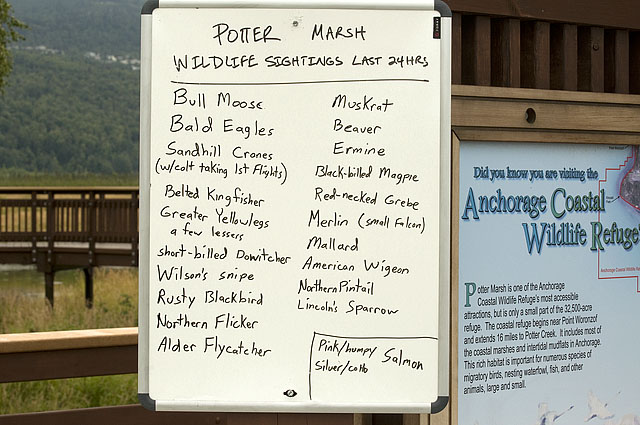 POTTER MARSH
WILDLIFE SIGHTINGS LAST 24HRS
Bull Moose
Bald Eagles
Sandhill Crones
(w/colt taking 1st flights)
Belted Kingfisher
Greater Yellowlegs
a few lessers
short-billed Dowitcher
Wilson's snipe
Rusty Blackbird
Northern Flicker
Alder Flycatcher
Muskrat
Beaver
Ermine
Black-billed Magpie
Red-necked Grebe
Merlin (small Falcon)
Mallard
American Wigeon
Northern Pintail
Lincoln's Sparrow
Pink/humpy Salmon
Silver/coho
Did you know you are visiting the
Anchorage Coastal
Wildlife Refuge?
Potter Marsh is one of the Anchorage
Coastal Wildlife Refuge's most accessible
attractions, but is only a small part of the 32,500-acre
refuge. The coastal refuge begins near Point Woronzof
and extends 16 miles to Potter Creek. It includes most of
the coastal marshes and intertidal mudflats in Anchorage.
This rich habitat is important for numerous species of
migratory birds, nesting waterfowl, fish, and other
animals, large and small.
Anchorage Coastal Wildlife Refuge